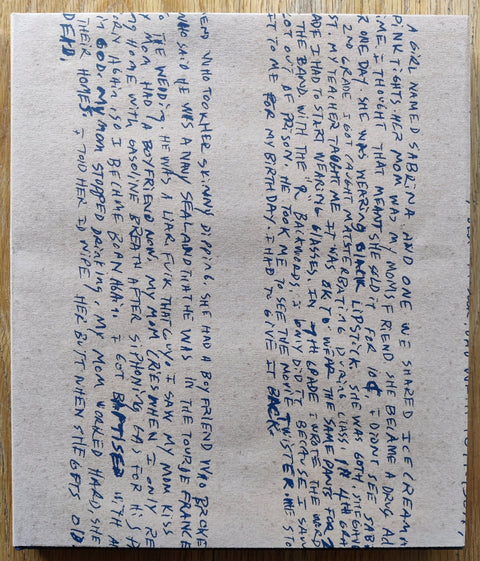 A GIRL NAMED SABRINA. AND ONE WE SHARED ICE CREAM A
PINK TIGHTS. HER MOM WAS MY MOMS FRIEND SHE BECAME A DRUG AD
IME. I THOUGHT THAT MEANT SHE SOLD IT FOR 10¢. I DIDNT SEE SABI
R ONE DAY. SHE WAS WEARING BLACK LIPSTICK. SHE WAS GOTH.
2ND GRADE I GOT CAUGHT MASTERBATING DURING CLASS IN 4TH GRA
ST. MY TEACHER TAUGHT ME IT WAS OK TO WEAR THE SAME PANTS FOR 2
ADE I HAD TO START WEARING GLASSES. IN 7TH GRADE I WROTE THE WORD
THE BAND. WITH THE "R" BACKWORDS. I ONLY DID IT BECAUSE I SAW
GOT OUT OF PRISON. HE TOOK ME TO SEE THE MOVIE TWISTER. HE STO
FT TO ME FOR MY BIRTHDAY. I HAD TO GIVE IT BACK.
IEND WHO TOOK HER SKINNY DIPPING. SHE HAD A BOYFRIEND WHO BROKE
WHO SAID HE WAS A NAVY SEAL AND THAT HE WAS IN THE TOUR DE FRANCE
O THE WEDDING. HE WAS A LIAR. FUCK THAT GUY. I SAW MY MOM KISS
Y MOM HAD A BOYFRIEND NOW. MY MOM CRIED WHEN I ONLY RE
MY HOME WITH GASOLINE BREATH AFTER SIPHONING GAS FOR HIS
ORN AGAIN. SO I BECAME BORN AGAIN. I GOT BAPTISED WITH
IM GOD. MY MOM STOPPED DRINKING. MY MOM WORKED HARD, SHE
THEIR HOMES. I TOLD HER ID WIPE HER BUTT WHEN SHE GETS OLD.
DEAD.